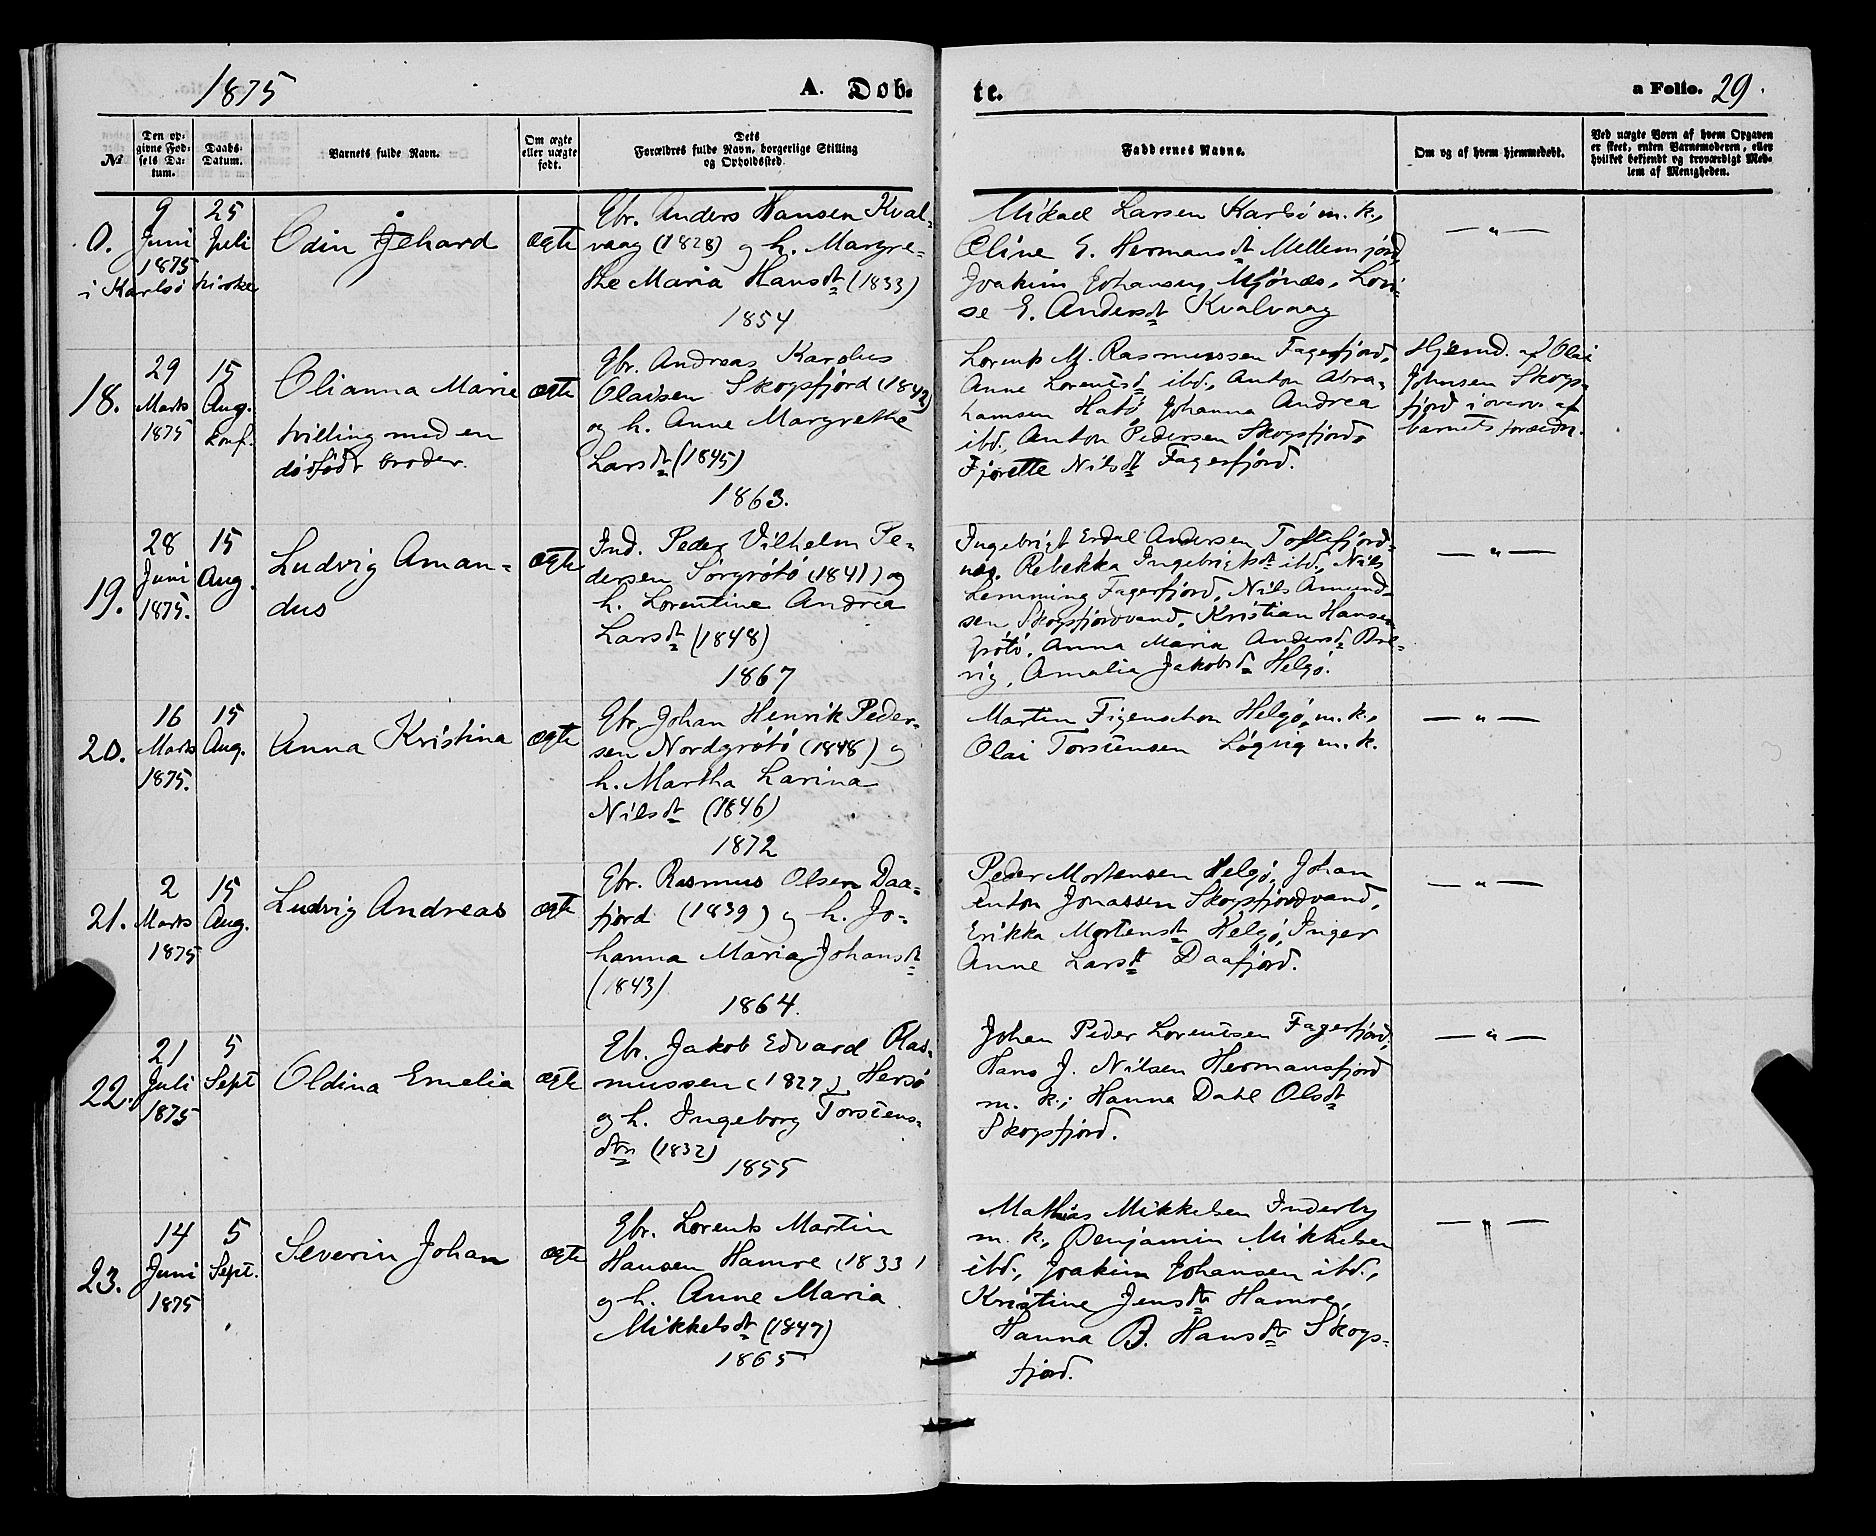 1875
A. Døb-
te.
a Folio. 29.
№
Den op-
givne Fød-
sels Da-
tum.
Daabs-
Datum.
Barnets fulde Navn.
Om ægte
eller uægte
født.
Dets
Forældres fulde Navn, borgerlige Stilling
og Opholdssted.
Faddernes Navne.
Om og af hvem hjemmedøbt.
Ved uægte Børn af hvem Opgaven
er skeet, enten Barnemoderen, eller
hvilket bekjendt og troværdigt Med-
lem af Menigheden.
0.
9
Juni
1875
25
Juli
i Karlsø kirke
Odin Jehard
ægte
Gbr. Anders Hansen Kval-
vaag (1828) og h. Margre-
the Maria Hansdt (1833)
1854
Mikael Larsen Karlsø m. k.,
Oline E. Hermansdt Mellemjord,
Joakim Johansen Mjønæs, Lovi-
se E. Andersdt Kvalvaag
— " —
18.
29
Marts
1875
15
Aug.
konf.
Olianna Marie
tvilling med en
dødfødt broder.
ægte
Gbr. Andreas Karolus
Olaisen Skogsfjord (1842)
og h. Anne Margrethe
Larsdt (1845)
1863.
Lorents M. Rasmussen Fagerfjord,
Anne Lorentsdt ibd., Anton Abra-
hamsen Hatø, Johanna Andrea
ibd., Anton Pedersen Skogsfjord,
Fjorette Nilsdt Fagerfjord.
Hjemd. af Olai
Johnsen Skogs-
fjord i overv. af
barnets foræld.
19.
28
Juni
1875.
15
Aug.
Ludvig Aman-
dus
ægte
Ind. Peder Vilhelm Pe-
dersen Sørgrøtø (1841) og
h. Lorentine Andrea
Larsdt (1848)
1867
Ingebrigt Erdal Andersen Toftefjord-
næs. Rebekka Ingebrigtsdt ibd., Nils
Lemming Fagerfjord, Nils Amund-
sen Skogsfjordvand, Kristian Hansen
Grøtø, Anna Maria Andersdt Bre-
vig, Amalia Jakobsdt Helgø.
— " —
20.
16
Marts
1875.
15
Aug.
Anna Kristina
ægte
Gbr. Johan Henrik Peder-
sen Nordgrøtø (1848) og
h. Martha Larina
Nilsdt (1846)
1872
Martin Figenschou Helgø, m. k.,
Olai Torstensen Løgvig m. k.
— " —
21.
2
Marts
1875
15
Aug.
Ludvig Andreas
ægte
Gbr. Rasmus Olsen Daa-
fjord (1839) og h. Jo-
hanna Maria Johansdt
(1843)
1864.
Peder Mortensen Helgø, Johan
Anton Jonassen Skogsfjordvand,
Erikka Mortensdt Helgø, Inger
Anne Larsdt Daafjord.
— " —
22.
21
Juli
1875
5
Sept
Oldina Emelia
ægte
Gbr. Jakob Edvard Ras-
mussen (1827) Hersø
og h. Ingeborg Torstens-
dtr (1832)
1855
Johan Peder Lorentsen Fagerfjord,
Hans J. Nilsen Hermansfjord
m. k.; Hanna Dahl Olsdt
Skogsfjord.
— " —
23.
14
Juni
1875
5
Sept.
Severin Johan
ægte
Gbr. Lorents Martin
Hansen Hamre (1833)
og h. Anne Maria
Mikkelsdt (1847)
1865
Mathias Mikkelsen Inderby
m. k., Benjamin Mikkelsen
ibd., Joakim Johansen ibd.,
Kristine Jensdtr Hamre,
Hanna B. Hansdtr Skogs-
fjord.
— " —